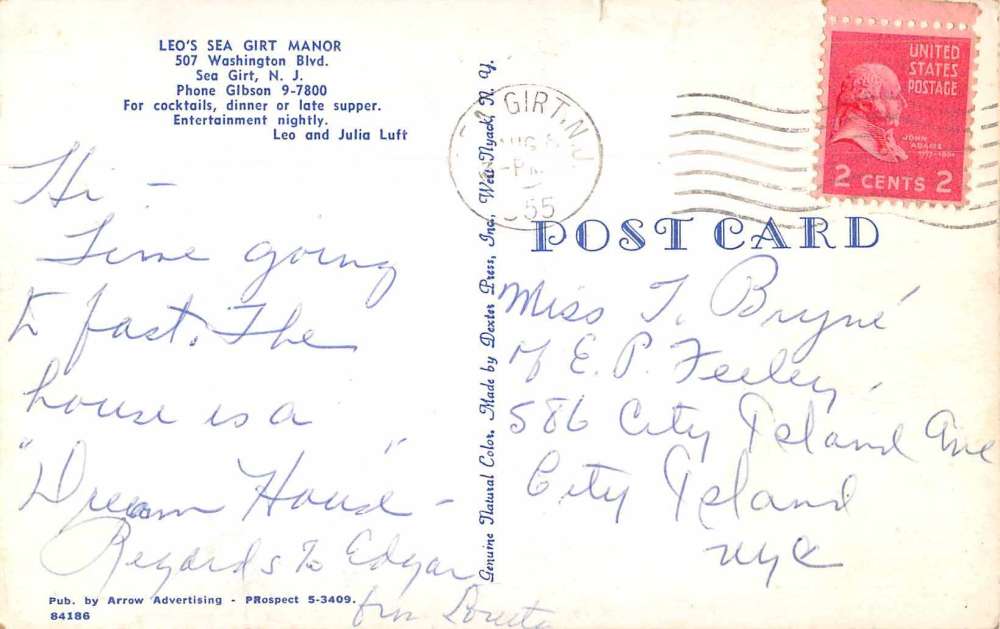 LEO'S SEA GIRT MANOR
507 Washington Blvd.
Sea Girt, N. J.
Phone GIbson 9-7800
For cocktails, dinner or late supper.
Entertainment nightly.
Leo and Julia Luft
Hi -
Time going
to fast. The
house is a
"Dream House" -
Regards to Edgar
Pub. by Arrow Advertising - PRospect 5-3409.
84186
Genuine Natural Color. Made by Dexter Press, Inc., West Nyack, N. Y.
GIRT, N.J.
AUG
1955
UNITED
STATES
POSTAGE
JOHN
ADAMS
2 CENTS 2
POST CARD
Miss T. Bryne
E. P. Feeley,
586 City Island Ave
City Island
NYC